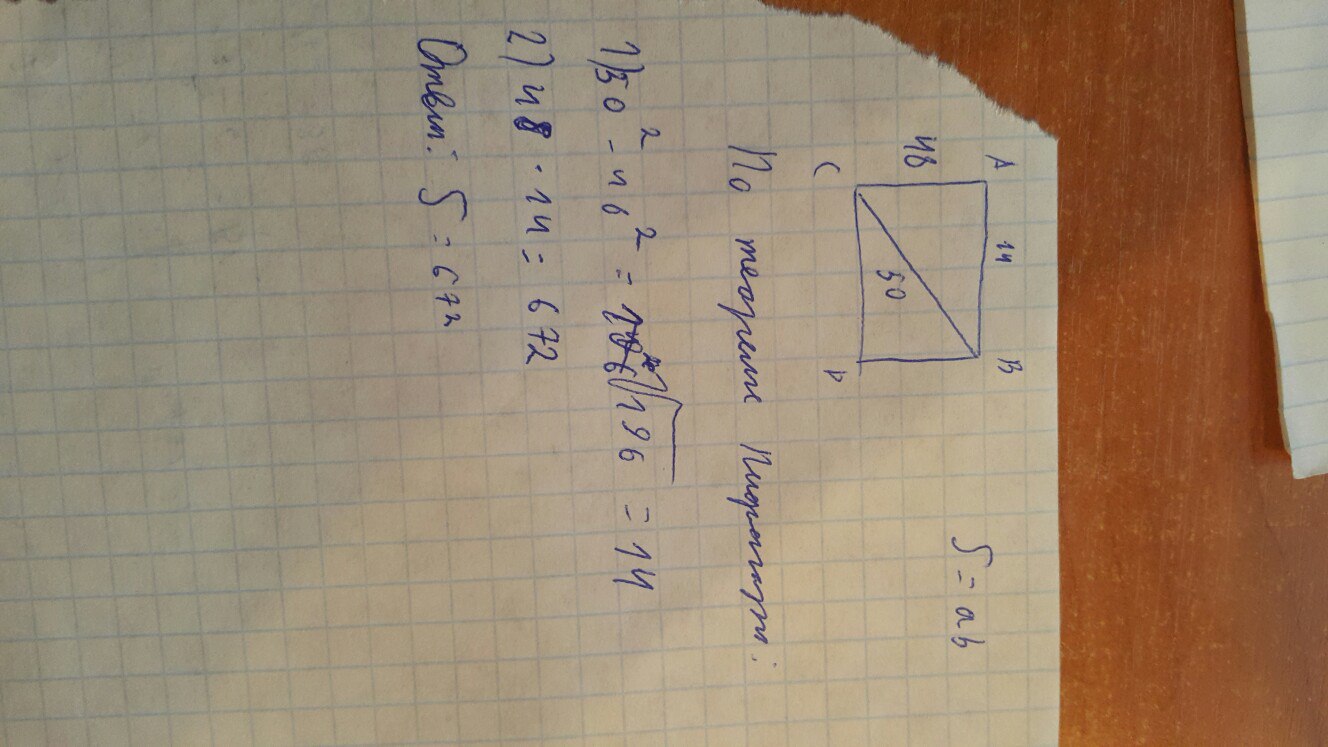 S = ab
A 14 B
48
50
C D
По теореме Пифагора:
1) 50² - 48² = √196 = 14
2) 48 · 14 = 672
Ответ: S = 672